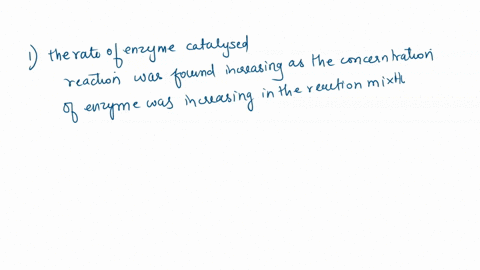 1) the rate of enzyme catalysed
reaction was found increasing as the concentration
of enzyme was increasing in the reaction